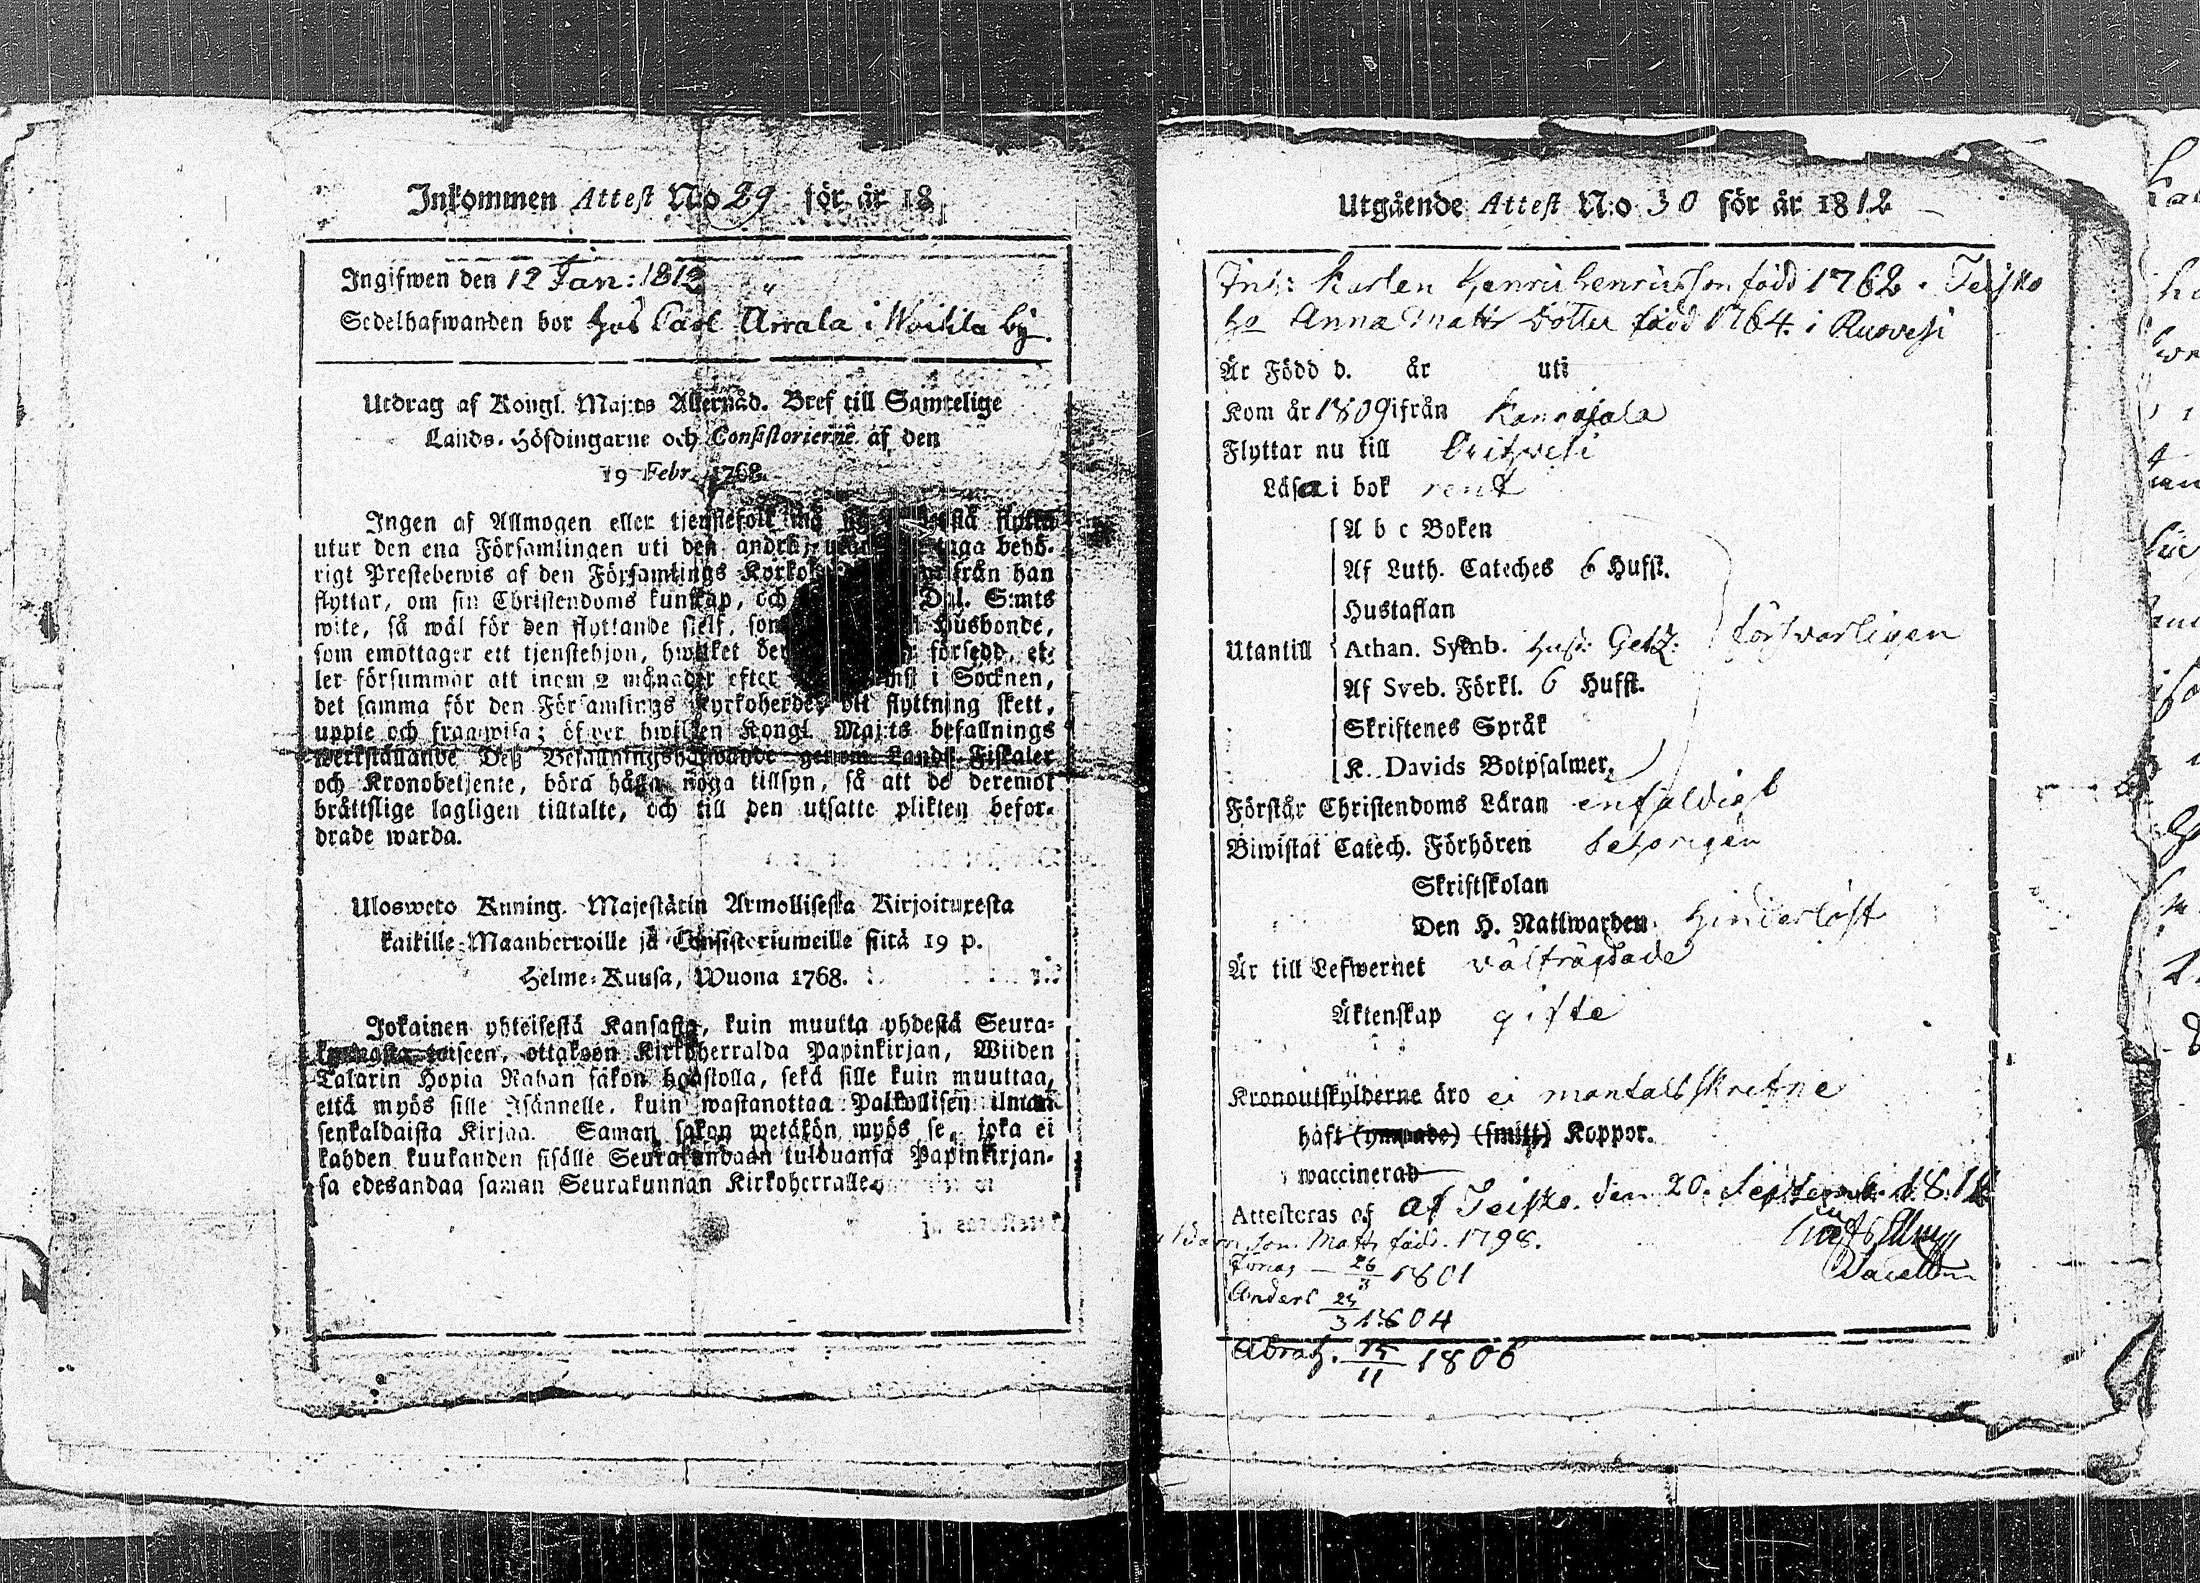 Inkommen Attest No 29 för år 18
Ingifwen den 12 Jan: 1813
Sedelhafwanden bor hos Carl Ärrala i Woitila by.
Utdrag af Kongl. Maj:ts Allernåd. Bref till Samtelige
Lands-Höfdingarne och Consistorierne af den
19 Febr. 1768.
Ingen af Allmogen eller tjenstefolk må flytta
utur den ena Församlingen uti den andra, utan taga behö-
rigt Prestebewis af den Församlings Kyrko från han
flyttar, om sin Christendoms kunskap, och Dal. S:mts
wite, så wäl för den flyttande sjelf, som Husbonde,
som emottager ett tjenstehjon, hwilket der försedd, el-
ler försummar att inom 2 månader efter i Socknen,
det samma för den Församlings Kyrkoherde, dit flyttning skett,
uppte och framwisa; öfwer hwilken Kongl. Maj:ts befallnings
werkställande Deß Befallningshafwande genom Lands-Fiskaler
och Kronobetjente, böra hafwa noga tillsyn, så att de deremot
bråttslige lagligen tilltalte, och till den utsatte plikten befor-
drade warda.
Ulosweto Kuning. Majestätin Armollisesta Kirjoituxesta
kaikille Maanherroille ja Consistoriumeille siitä 19 p.
Helme-Kuusa, Wuona 1768.
Jokainen yhteisestä Kansasta, kuin muutta yhdestä Seura-
kunnasta toiseen, ottakoon Kirkkoherralda Papinkirjan, Wiiden
Talarin Hopia Rahan sakon haastolla, sekä sille kuin muuttaa,
että myös sille Isännelle, kuin wastanottaa Palkollisen ilman
senkaldaista Kirjaa. Saman sakon wetäkön myös se, joka ei
kahden kuukauden sisälle Seurakundaan tulduansa Papinkirjan-
sa edesandaa saman Seurakunnan Kirkoherralle
Utgående Attest N:o 30 för år 1812
Inh: Karlen Henric Henricsson född 1762 i Teisko
Ho Anna Matts Dotter född 1764 i Ruovesi
Är Född d. år uti
Kom år 1809 ifrån Kangasala
Flyttar nu till
Läsa i bok rent
A b c Boken
Af Luth. Cateches 6 Hufst.
Hustaflan
Utantill Athan. Symb. Hust. Getz. försvarligen
Af Sveb. Förkl. 6 Hufst.
Skriftenes Språk
K. Davids Botpsalmer,
Förstår Christendoms Läran enfaldigt
Biwistat Catech. Förhören behörigen
Skriftskolan
Den H. Nattwarden hinderlöst
Är till Lefwernet välfrägdade
Äktenskap gifte
Kronoutskylderne äro ei mantalsskrefne
haft (ympade) (smitt) Koppor.
waccinerad
Attesteras af af Teisko den 20 Septemb. 1812
son Matts född 1798.
Jonas 26/3 1801
Anders 23/3 1804
Abrah. 15/11 1806